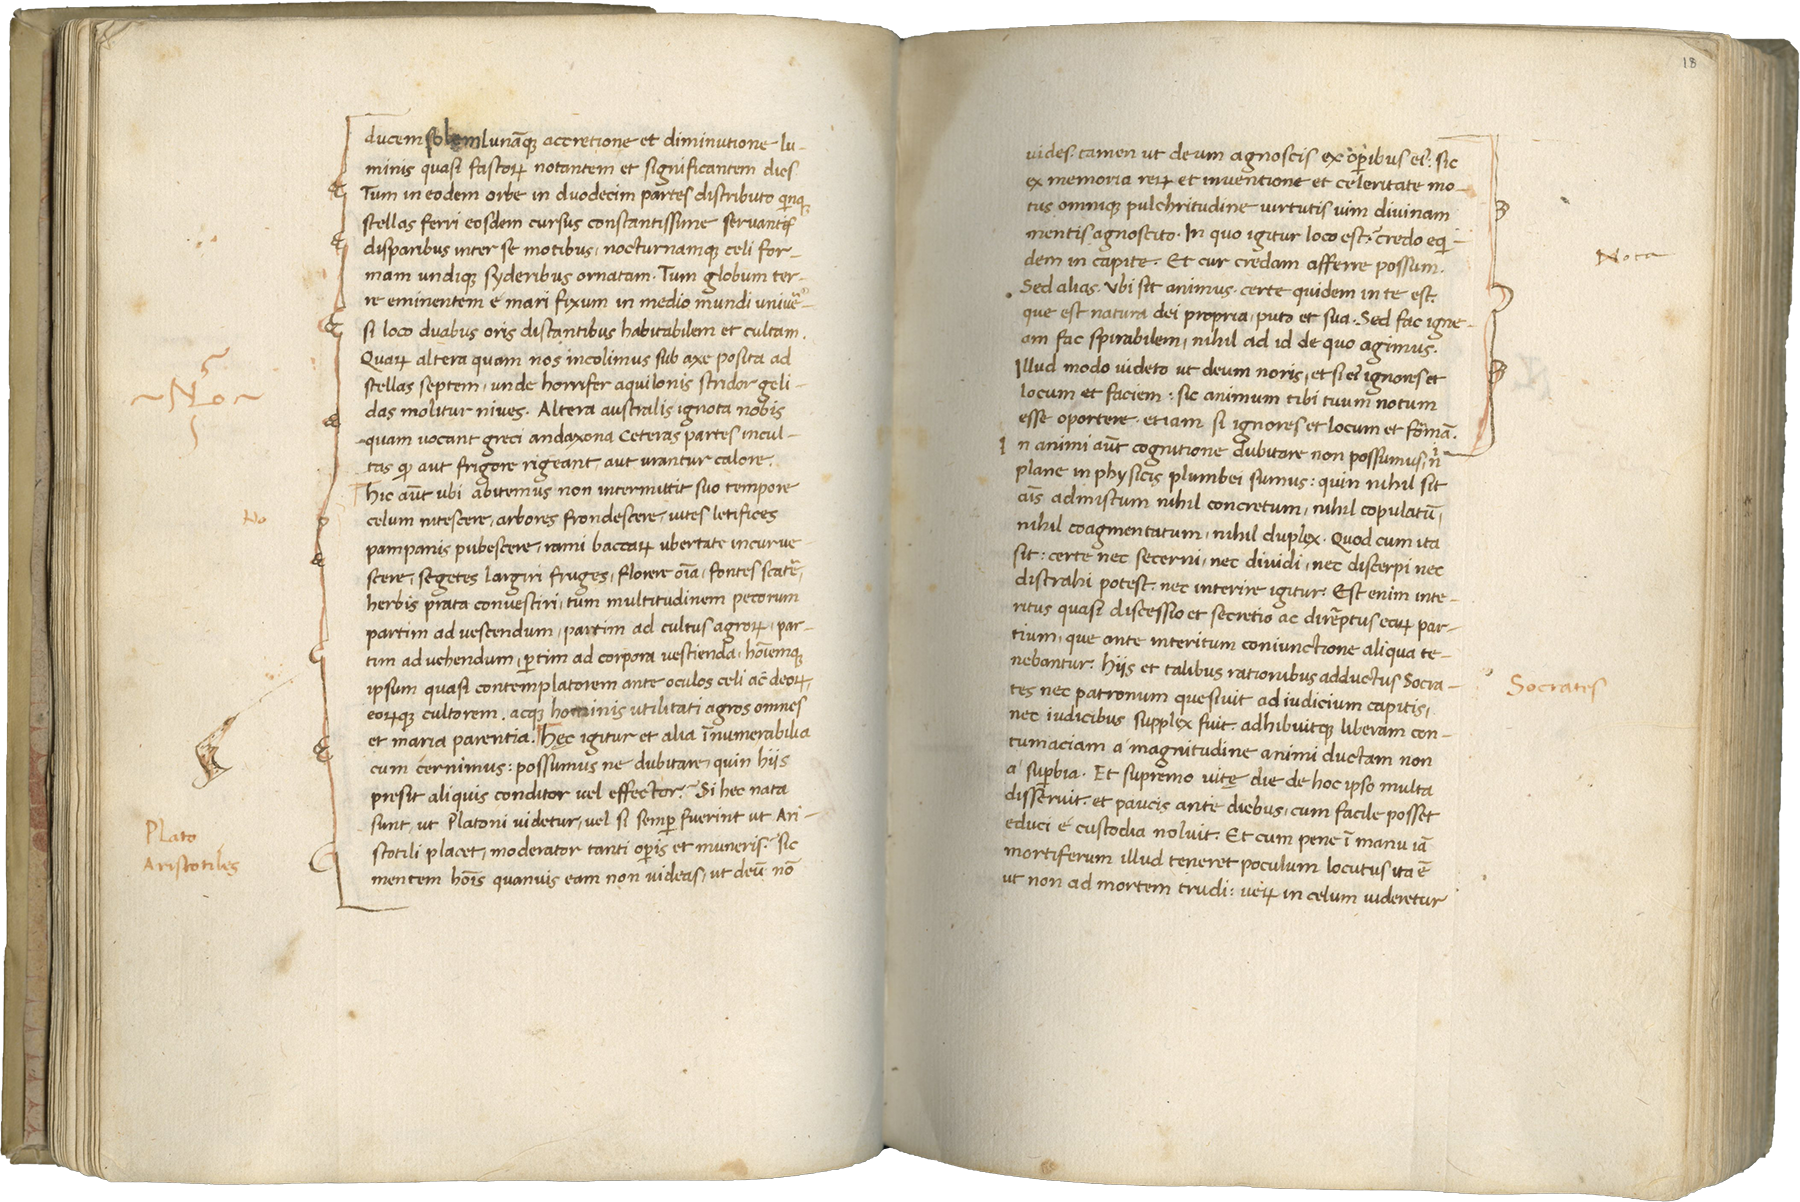 ducem solem lunāq̄ accretione et diminutione lu-
minis quasi fastoꝝ notantem et significantem dies
Tum in eodem orbe in duodecim partes distributo qīnq̄
stellas ferri eosdem cursus constantissime servantes
disparibus inter se motibus, nocturnamq̄ celi for-
mam undiq̄ syderibus ornatam. Tum globum ter-
re eminentem e mari fixum in medio mundi univer-
si loco duabus oris distantibus habitabilem et cultam.
Quaꝝ altera quam nos incolimus sub axe posita ad
stellas septem, unde horrifer aquilonis stridor geli-
das molitur nives. Altera australis ignota nobis
quam uocant greci andaxona Ceteras partes incul-
tas qꝫ aut frigore rigeant, aut urantur calore.
hic aūt ubi abitemus non intermittit suo tempore
celum nitescere, arbores frondescere, uites letifices
pampanis pubescere, rami baccaꝝ ubertate incurve-
scere, segetes largiri fruges, florere oīa, fontes scatē,
herbis prata convestiri, tum multitudinem pecorum
partim ad vescendum, partim ad cultus agroꝝ, par-
tim ad uehendum, ꝑtim ad corpora vestienda, hōiemq̄
ipsum quasi contemplatorem ante oculos celi ac deoꝝ,
eoꝝq̄ cultorem. atq̄ hominis utilitati agros omnes
et maria parentia. Hęc igitur et alia īnumerabilia
cum cernimus: possumus ne dubitare, quin hijs
presit aliquis conditor vel effector. Si hec nata
sunt, ut Platoni videtur, vel si semꝑ fuerint ut Ari-
stotili placet, moderator tanti oꝑis et muneris. Sic
mentem hōis quanuis eam non uideas, ut deū nō
No
No
Plato
Aristotiles
18
uides. tamen ut deum agnoscis ex oꝑibus ei: sic
ex memoria reꝝ et inventione et celeritate mo-
tus omniq̄ pulchritudine uirtutis uim diuinam
mentis agnoscito. In quo igitur loco est? credo eqi-
dem in capite. Et cur credam afferre possum.
Sed alias. Vbi sit animus. certe quidem in te est.
que est natura dei propria, puto et sua. Sed fac igne-
am fac spirabilem, nihil ad id de quo agimus.
Illud modo uideto ut deum noris, et si eī ignores et
locum et faciem: sic animum tibi tuum notum
esse oportere. etiam si ignores et locum et formā.
In animi aūt cognitione dubitare non possumus, nī
plane in physicis plumbei sumus: quin nihil sit
aīs admistum nihil concretum, nihil copulatū,
nihil coagmentatum, nihil duplex. Quod cum ita
sit: certe nec secerni, nec dividi, nec discerpi nec
distrahi potest. nec interire igitur. Est enim inte-
ritus quasi discessio et secretio ac direptus eaꝝ par-
tium, que ante interitum coniunctione aliqua te-
nebantur. Hijs et talibus rationibus adductus Socra-
tes nec patronum quesiuit ad iudicium capitis,
nec iudicibus supplex fuit. adhibuitq̄ liberam con-
tumaciam a magnitudine animi ductam non
a suꝑbia. Et supremo uitę die de hoc ipso multa
disseruit. et paucis ante diebus, cum facile posset
educi e custodia noluit. Et cum pene ī manu iā
mortiferum illud teneret poculum locutus ita ē
ut non ad mortem trudi: ueꝝ in celum uideretur
Nota
Socrates